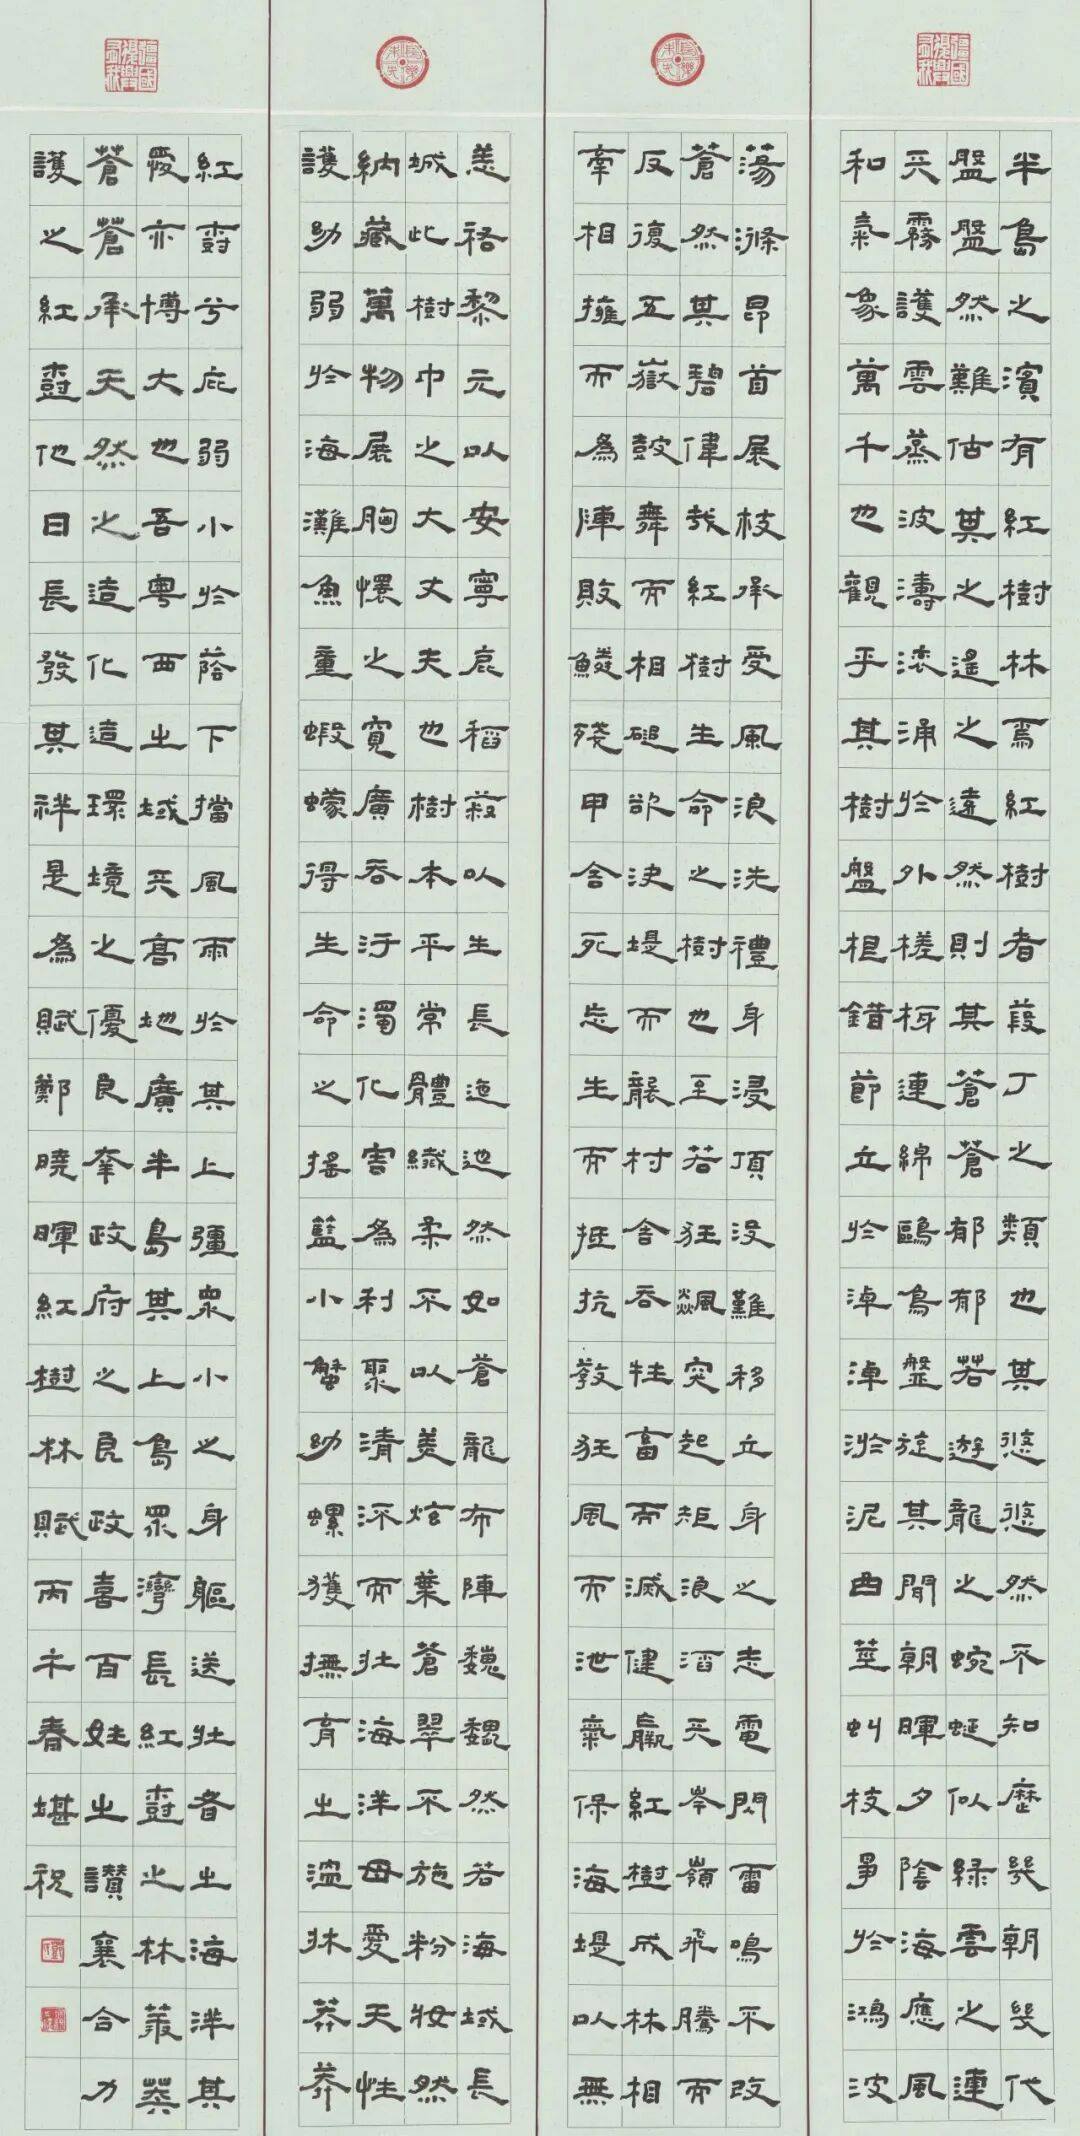 半島之濱有紅樹林焉紅樹者葭丁之類也其悠悠然不知歷幾朝幾代
盤盤然難估其之遙之遠然則其蒼蒼郁郁若遊龍之蜿蜒似綠雲之連
天霧護雲蒸波濤滚涌於外槎枒連綿鷗鳥盤旋其間朝暉夕陰海應風
和氣象萬千也觀乎其樹盤根錯節立於淖淖淤泥曲莖虬枝爭於鴻波
蕩滌昂首展枝承受風浪洗禮身浸頂沒難移立身之志電閃雷鳴不改
蒼然其碧偉哉紅樹生命之樹也至若狂飆突起矩浪滔天岑嶺飛騰而
反復五嶽鼓舞而相磓欲決堤而襲村舍吞牲畜而滅健贏紅樹成林相
牽相擁而為陣敗鱗殘甲舍死忘生而抵抗教狂風而泄氣保海堤以無
恙祐黎元以安寧庇稻菽以生長迤迤然如蒼龍布陣巍巍然若海域長
城此樹中之大丈夫也樹本平常體纖柔不以美炫葉蒼翠不施粉妝然
納藏萬物展胸懷之寬廣吞汙濁化害為利聚清深而壯海洋母愛天性
護幼弱於海灘魚童蝦蠓得生命之搖籃小蟹幼螺獲撫育之溫牀莽莽
紅樹兮庇弱小於蔭下擋風雨於其上彊衆小之身軀送壯者之海洋其
愛亦博大也吾粵西之域天高地廣半島其上島眾灣長紅樹之林叢
蒼蒼承天然之造化造環境之優良奉政府之良政喜百姓之讚襄合力
護之紅樹他日長發其祥是為賦鄭曉暉紅樹林賦丙午春堪祝